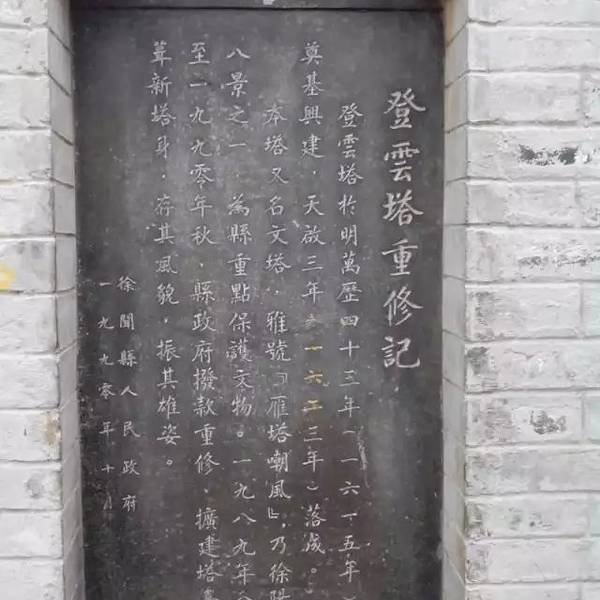 登雲塔重修記
登雲塔於明萬歷四十三年(一六一五年)
奠基興建，天啟三年(一六二三年)落成。
本塔又名文塔，雅號『雁塔嘲風』，乃徐陽
八景之一，為縣重點保護文物。一九八九年
至一九九零年秋，縣政府撥款重修，擴建塔
葺新塔身，存其風貌，振其雄姿。
徐聞縣人民政府
一九九零年十月